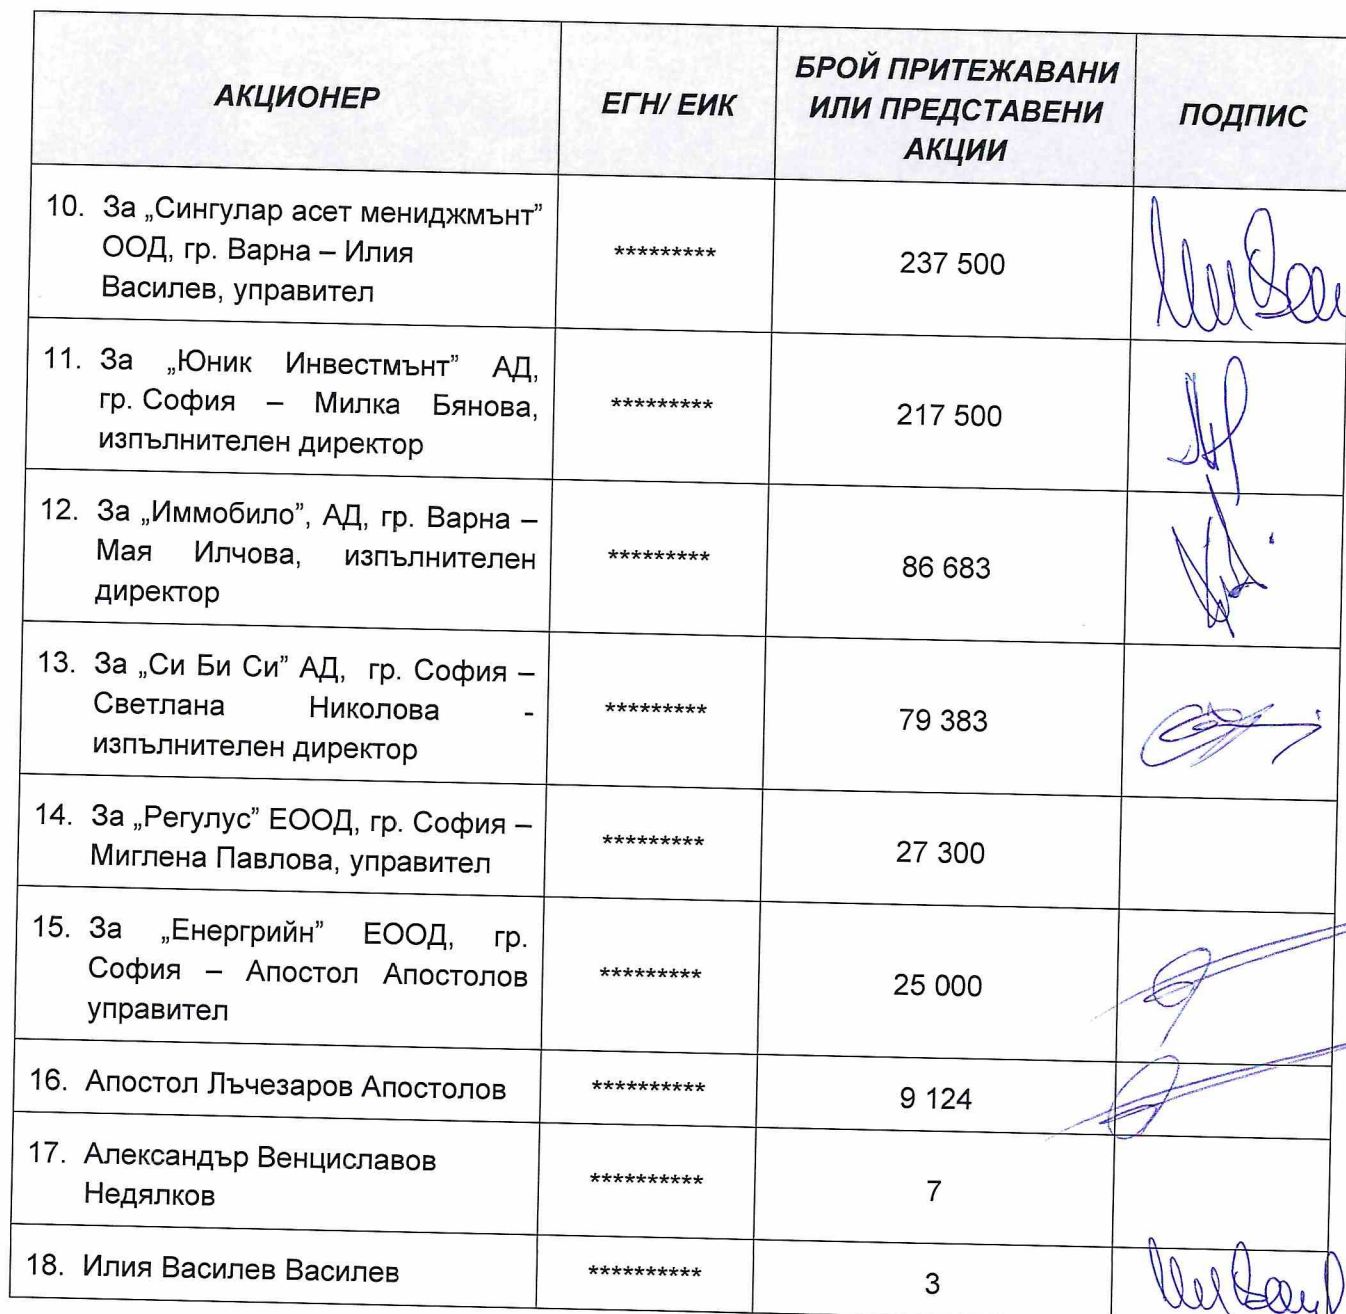 АКЦИОНЕР
ЕГН/ ЕИК
БРОЙ ПРИТЕЖАВАНИ
ИЛИ ПРЕДСТАВЕНИ
АКЦИИ
ПОДПИС
10. За „Сингулар асет мениджмънт”
ООД, гр. Варна – Илия
Василев, управител
*********
237 500
11. За „Юник Инвестмънт” АД,
гр. София – Милка Бянова,
изпълнителен директор
*********
217 500
12. За „Иммобило”, АД, гр. Варна –
Мая Илчова, изпълнителен
директор
*********
86 683
13. За „Си Би Си” АД, гр. София –
Светлана Николова -
изпълнителен директор
*********
79 383
14. За „Регулус” ЕООД, гр. София –
Миглена Павлова, управител
*********
27 300
15. За „Енергрийн” ЕООД, гр.
София – Апостол Апостолов
управител
*********
25 000
16. Апостол Лъчезаров Апостолов
**********
9 124
17. Александър Венциславов
Недялков
**********
7
18. Илия Василев Василев
**********
3